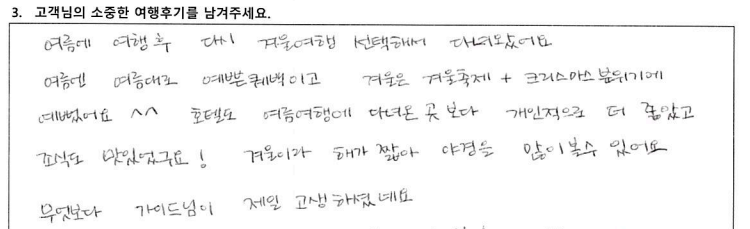 3. 고객님의 소중한 여행후기를 남겨주세요.
여름에 여행 후 다시 겨울여행 선택해서 다녀왔어요
여름엔 여름대로 예쁜 퀘백이고 겨울은 겨울축제 + 크리스마스 분위기에
예뻤어요 ^^ 호텔도 여름여행에 다녀온 곳 보다 개인적으로 더 좋았고
조식도 맛있었구요! 겨울이라 해가 짧아 야경을 많이 볼수 있어요
무엇보다 가이드님이 제일 고생하셨네요